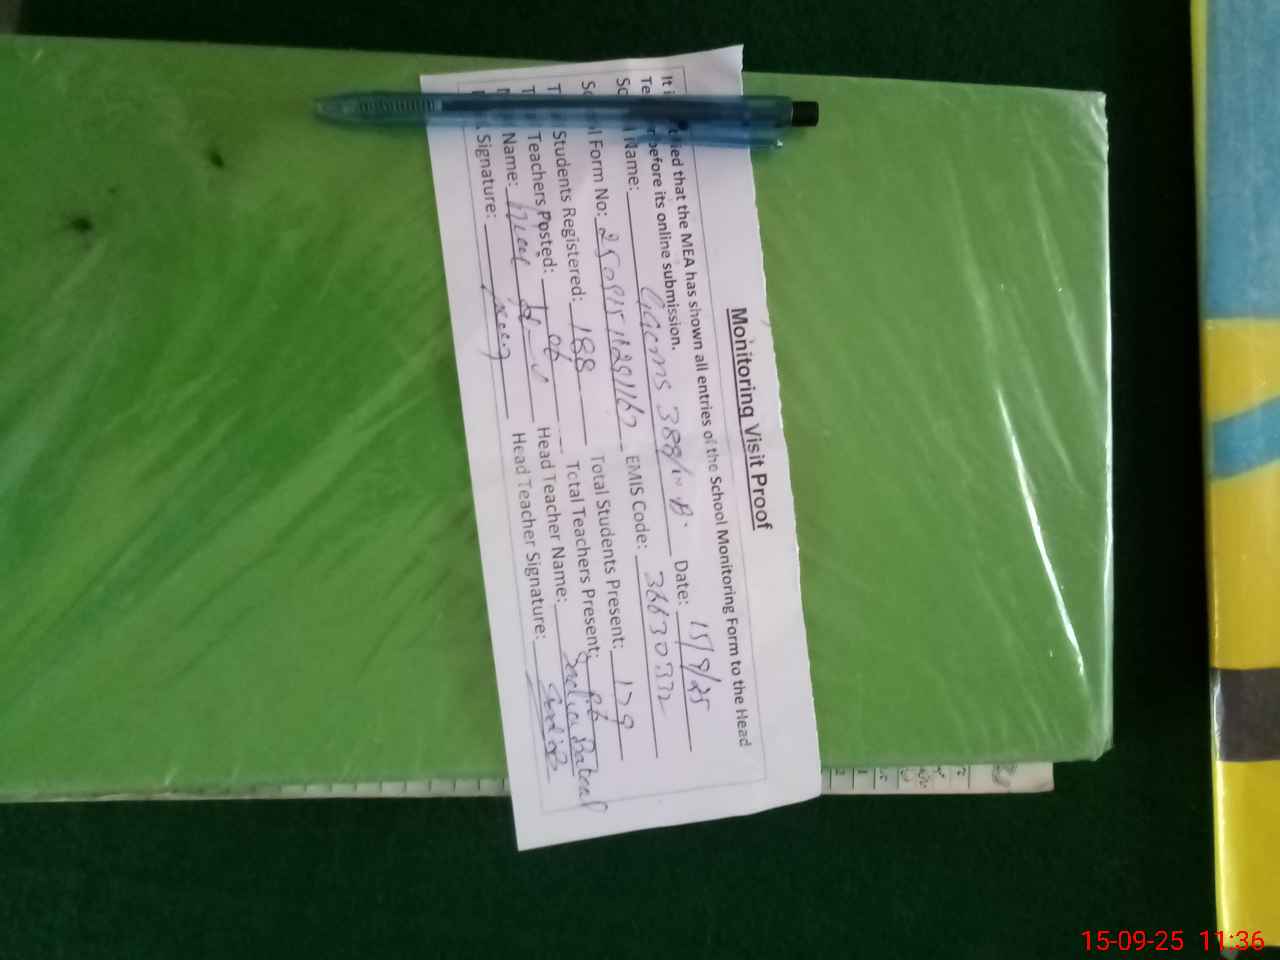 Monitoring Visit Proof
It i ied that the MEA has shown all entries of the School Monitoring Form to the Head
Te before its online submission.
Sc Name: 388/ Date: 15/9/25
Sc l Form No: EMIS Code: 36630332
T Students Registered: 188 Total Students Present: 179
T Teachers Posted: 06 Total Teachers Present: 06
Name: Head Teacher Name:
Signature: Head Teacher Signature:
15-09-25 11:36